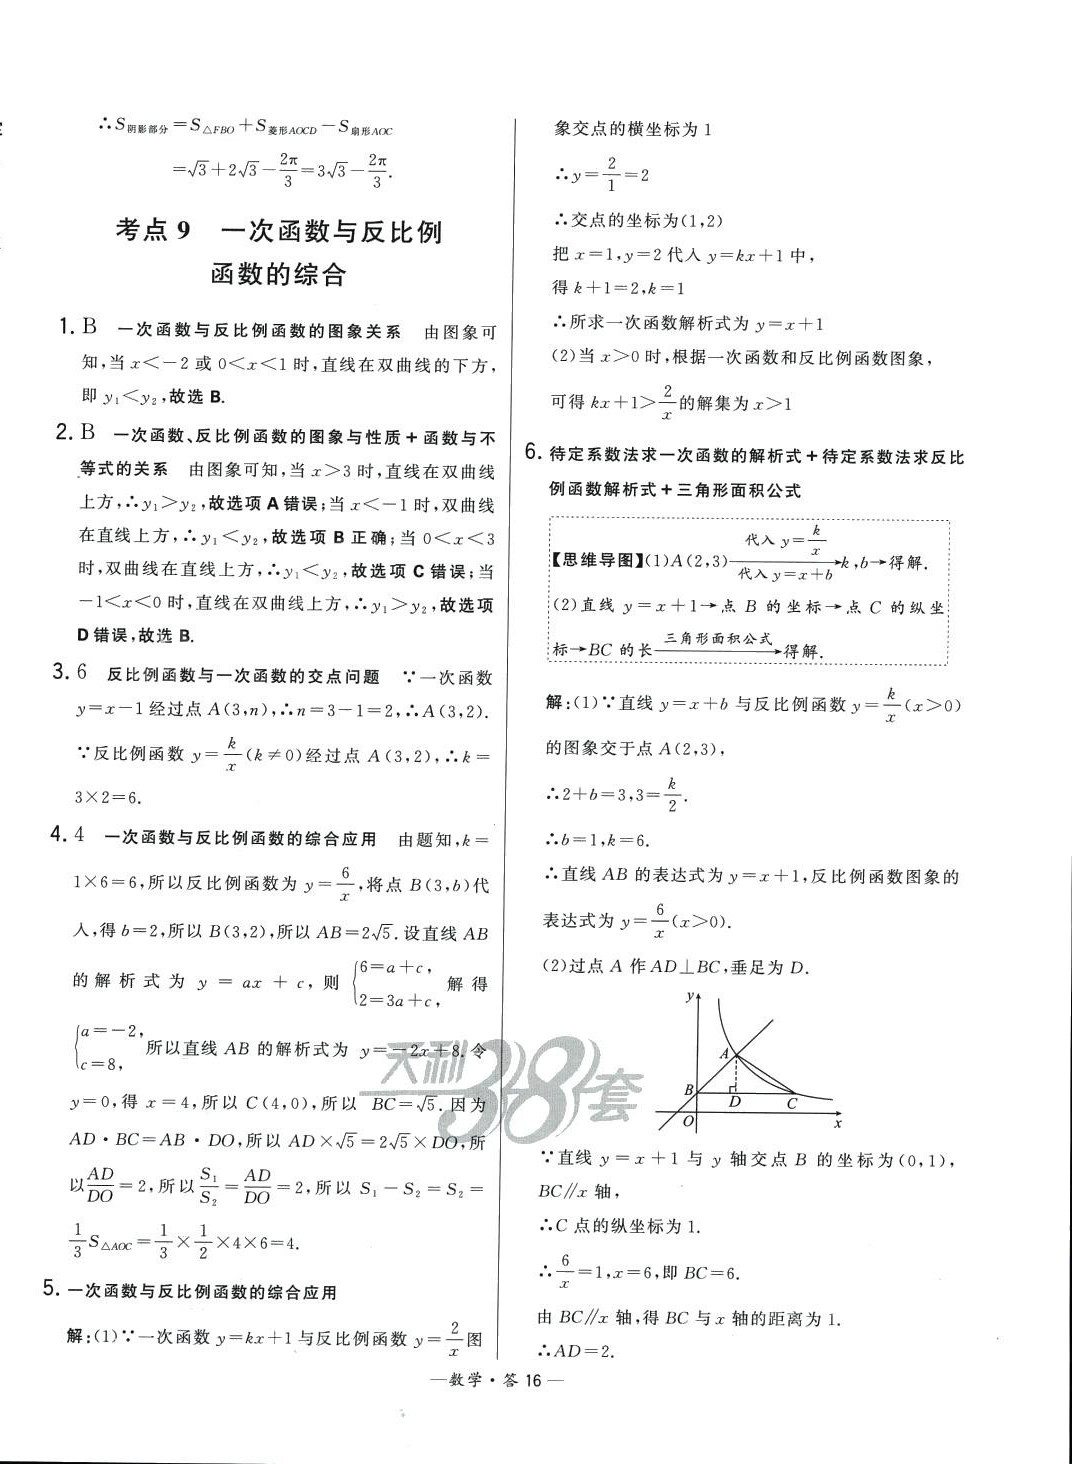 ∴S阴影部分=S△FBO+S菱形AOCD-S扇形AOC
=√3+2√3-2π/3=3√3-2π/3.
考点9 一次函数与反比例
函数的综合
1. B 一次函数与反比例函数的图象关系 由图象可
知,当x<-2或0<x<1时,直线在双曲线的下方,
即y₁<y₂,故选B.
2. B 一次函数、反比例函数的图象与性质+函数与不
等式的关系 由图象可知,当x>3时,直线在双曲线
上方,∴y₁>y₂,故选项A错误;当x<-1时,双曲线
在直线上方,∴y₁<y₂,故选项B正确;当0<x<3
时,双曲线在直线上方,∴y₁<y₂,故选项C错误;当
-1<x<0时,直线在双曲线上方,∴y₁>y₂,故选项
D错误,故选B.
3. 6 反比例函数与一次函数的交点问题 ∵一次函数
y=x-1经过点A(3,n),∴n=3-1=2,∴A(3,2).
∵反比例函数y=k/x(k≠0)经过点A(3,2),∴k=
3×2=6.
4. 4 一次函数与反比例函数的综合应用 由题知,k=
1×6=6,所以反比例函数为y=6/x,将点B(3,b)代
入,得b=2,所以B(3,2),所以AB=2√5.设直线AB
的解析式为y=ax+c,则{6=a+c,2=3a+c,解得
{a=-2,c=8,所以直线AB的解析式为y=-2x+8.令
y=0,得x=4,所以C(4,0),所以BC=√5.因为
AD·BC=AB·DO,所以AD×√5=2√5×DO,所
以AD/DO=2,所以S₁/S₂=AD/DO=2,所以S₁-S₂=S₂=
1/3S△AOC=1/3×1/2×4×6=4.
5. 一次函数与反比例函数的综合应用
解:(1)∵一次函数y=kx+1与反比例函数y=2/x图
象交点的横坐标为1
∴y=2/1=2
∴交点的坐标为(1,2)
把x=1,y=2代入y=kx+1中,
得k+1=2,k=1
∴所求一次函数解析式为y=x+1
(2)当x>0时,根据一次函数和反比例函数图象,
可得kx+1>2/x的解集为x>1
6. 待定系数法求一次函数的解析式+待定系数法求反比
例函数解析式+三角形面积公式
【思维导图】(1)A(2,3) 代入y=k/x 代入y=x+b →k,b→得解.
(2)直线y=x+1→点B的坐标→点C的纵坐
标→BC的长 三角形面积公式 →得解.
解:(1)∵直线y=x+b与反比例函数y=k/x(x>0)
的图象交于点A(2,3),
∴2+b=3,3=k/2.
∴b=1,k=6.
∴直线AB的表达式为y=x+1,反比例函数图象的
表达式为y=6/x(x>0).
(2)过点A作AD⊥BC,垂足为D.
y
A
B
D
C
O
x
∵直线y=x+1与y轴交点B的坐标为(0,1),
BC∥x轴,
∴C点的纵坐标为1.
∴6/x=1,x=6,即BC=6.
由BC∥x轴,得BC与x轴的距离为1.
∴AD=2.
天利38套
—数学·答16—